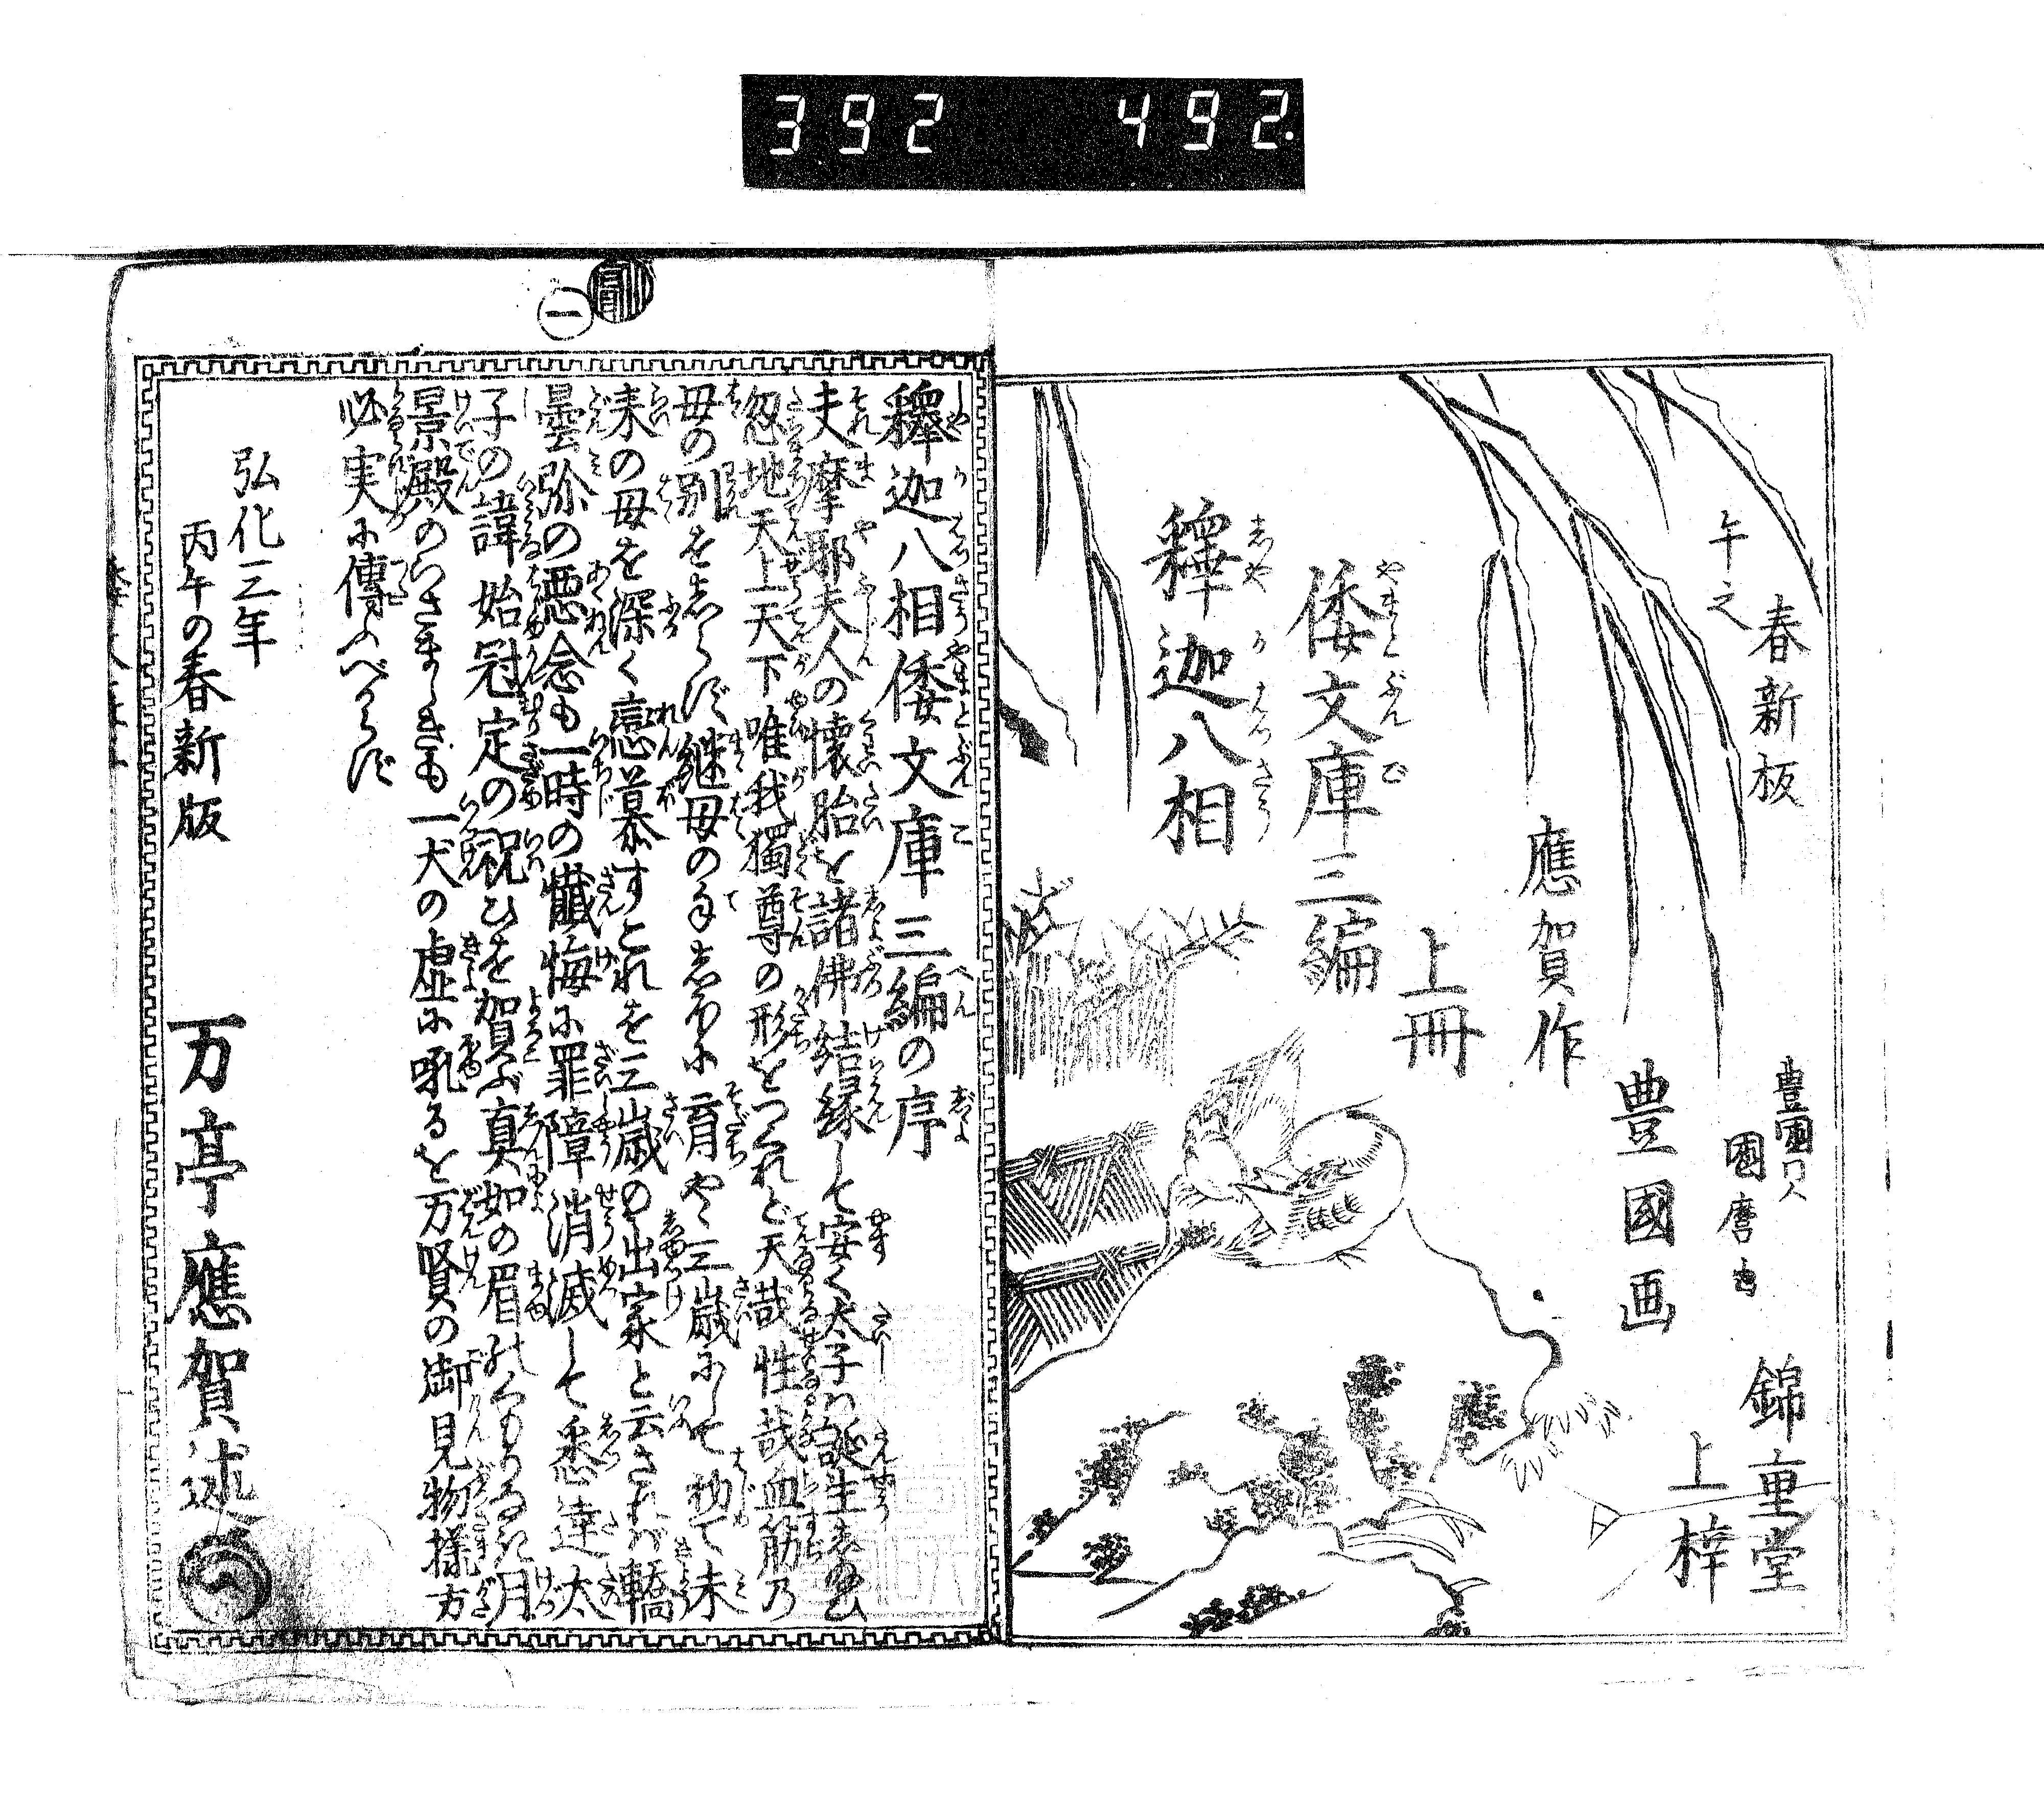 392 492.
午之
春新板
豊国門人
国麿画
錦重堂
上梓
豊國画
應賀作
上冊
倭文庫三編
やまとぶんこ
釋迦八相
しやかはつさう
一
釋迦八相倭文庫三編の序
夫摩耶夫人の懐胎を諸佛結縁して安く太子ハ誕生まし〳〵
忽地天上天下唯我獨尊の形をつくれど天哉性哉血筋乃
母の別をしらず継母の手しほに育やゝ三歳にして初て未
来の母を深く戀慕すこれを三歳の出家と云されバ轎
曇弥の悪念も一時の懺悔に罪障消滅して悉達太
子の諱始冠定の祝ひを賀ぶ真如の眉のくもりなき月
景殿のいさましきも一犬の虚に吼るを万賢の御見物様方
必実に傳ふべからず
弘化三年
丙午の春新版
万亭應賀述